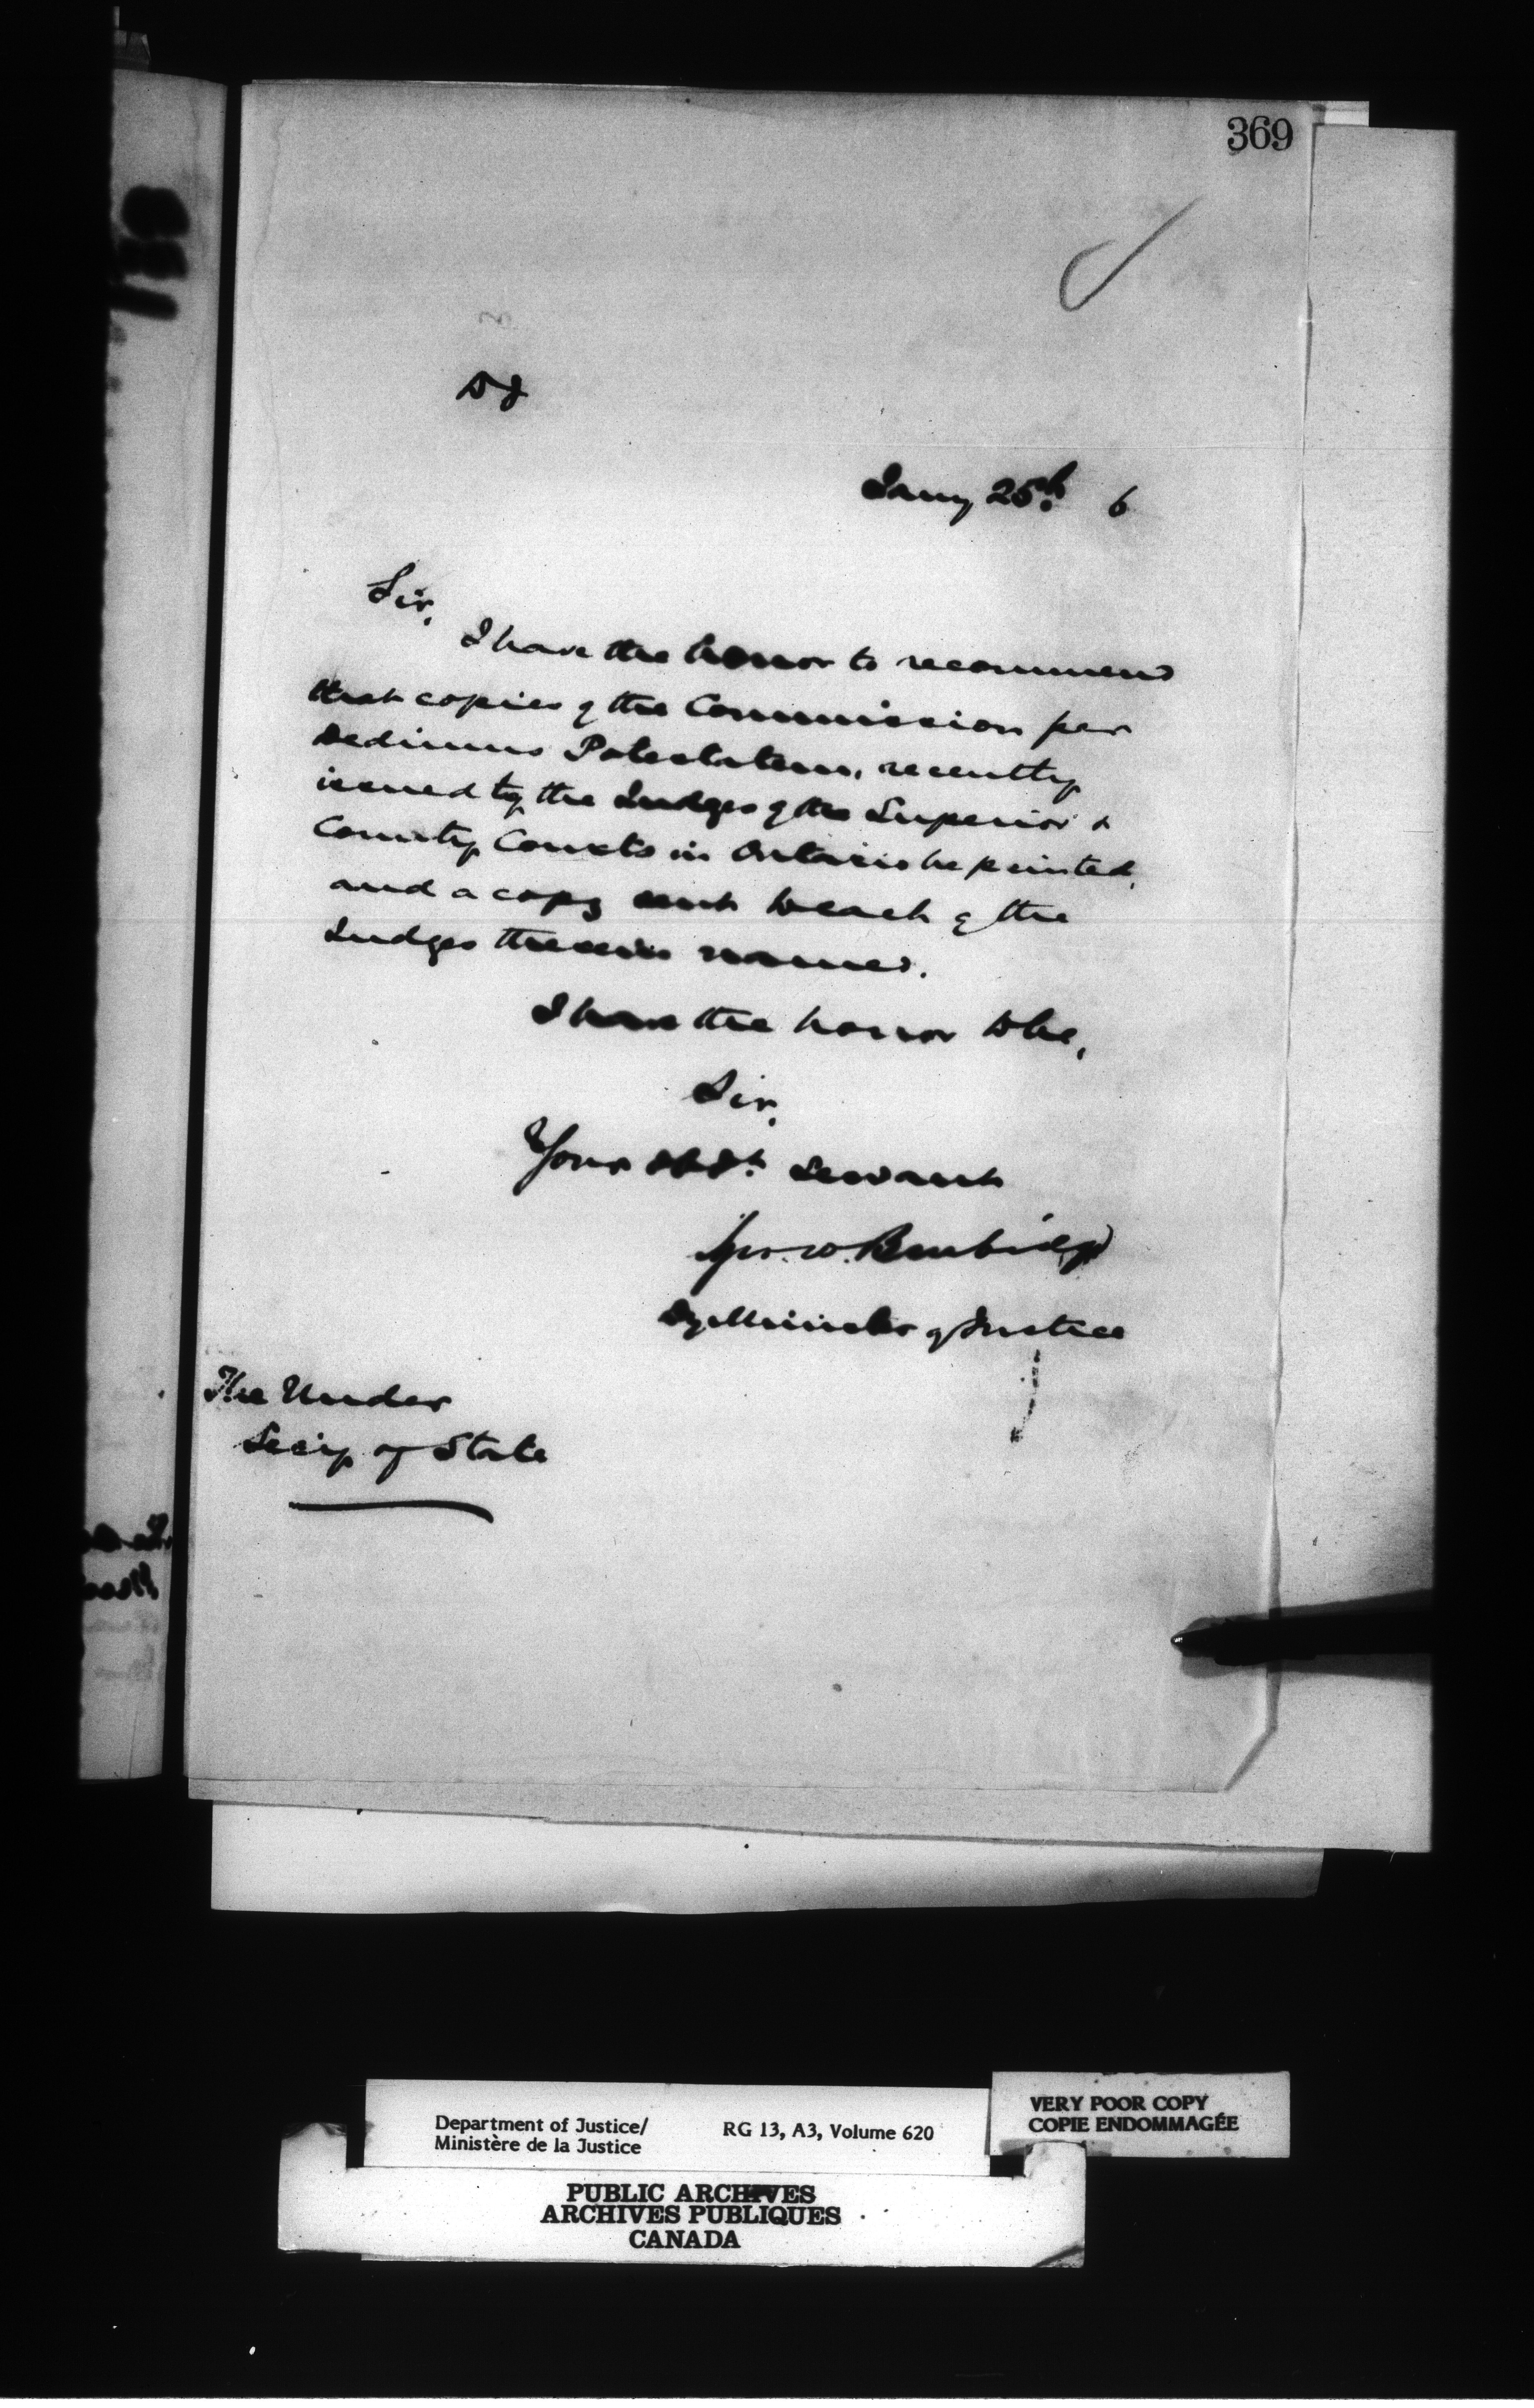 369
DJ
Jany 25th 6
Sir,
I have the honor to recommend
that copies of the Commission per
Dedimus Potestatem, recently
issued to the Judges of the Superior &
County Courts in Ontario be printed,
and a copy sent to each of the
Judges therein named.
I have the honor to be,
Sir,
Your obdt. servant
Geo. W. Burbidge
Dy Minister of Justice
The Under
Secy of State
Department of Justice/
Ministère de la Justice
RG 13, A3, Volume 620
VERY POOR COPY
COPIE ENDOMMAGÉE
PUBLIC ARCHIVES
ARCHIVES PUBLIQUES
CANADA